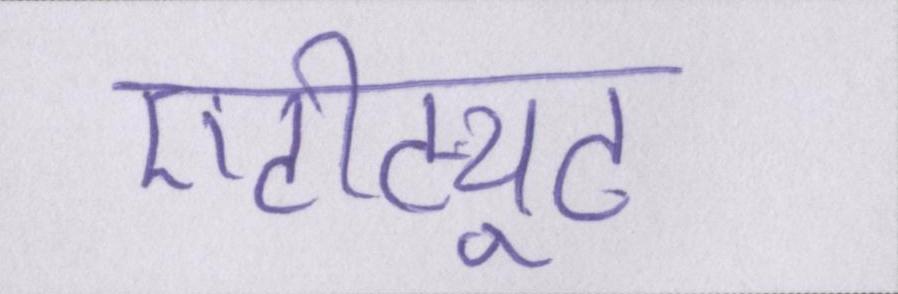 एटीट्यूट